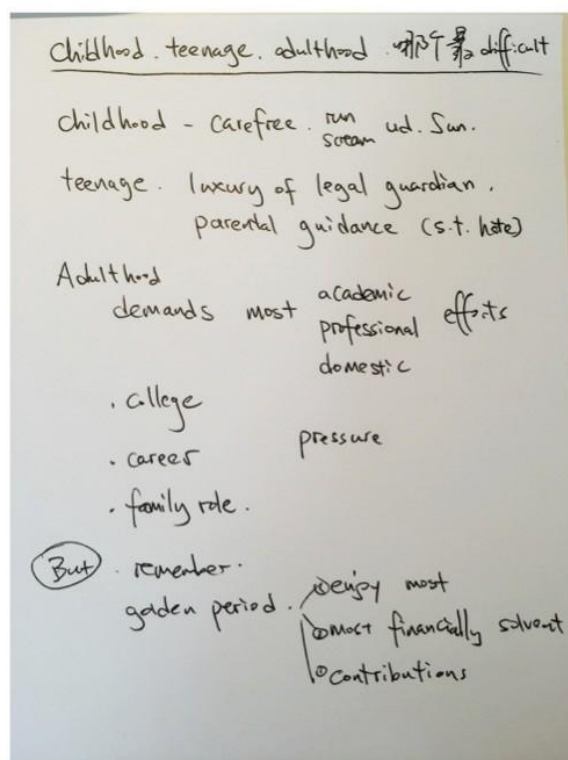 childhood. teenage. adulthood. 哪个最 difficult
childhood - carefree. run ud. Sun.
scream
teenage. luxury of legal guardian.
parental guidance (s.t. hate)
Adulthood
demands most academic efforts
professional
domestic
· college
· career pressure
· family role.
But · remember.
golden period. ① enjoy most
② most financially solvent
③ contributions